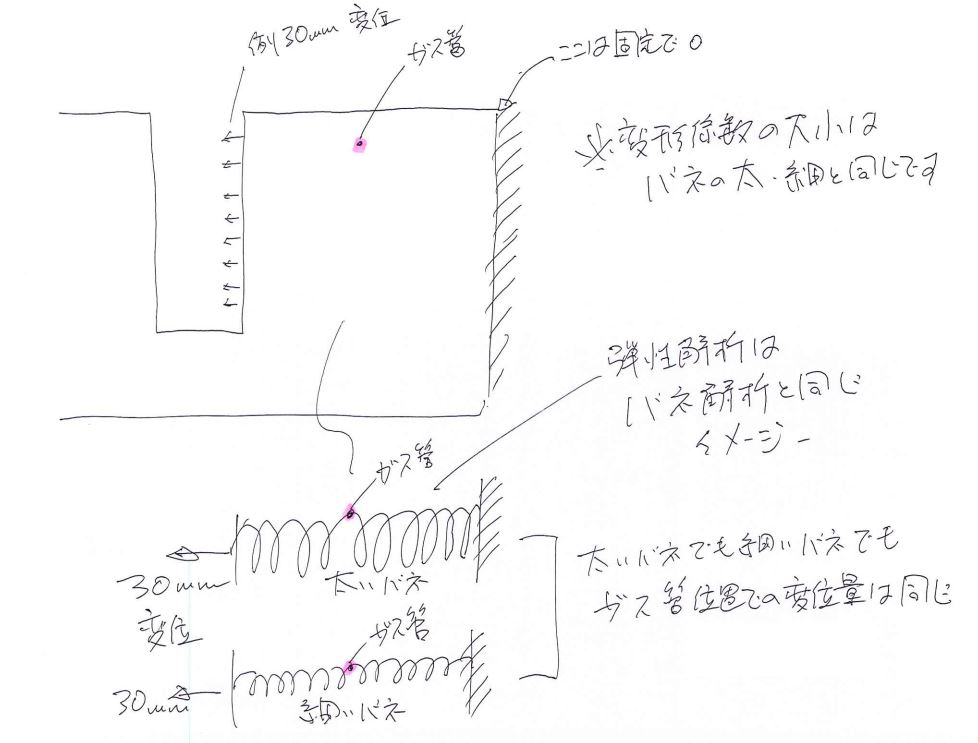 例)30mm変位
ガス管
ここは固定で0
※変形係数の大小は
バネの太・細と同じです
弾性解析は
バネ解析と同じ
イメージー
ガス管
30mm
変位
太いバネ
太いバネでも細いバネでも
ガス管位置での変位量は同じ
ガス管
30mm
細いバネ